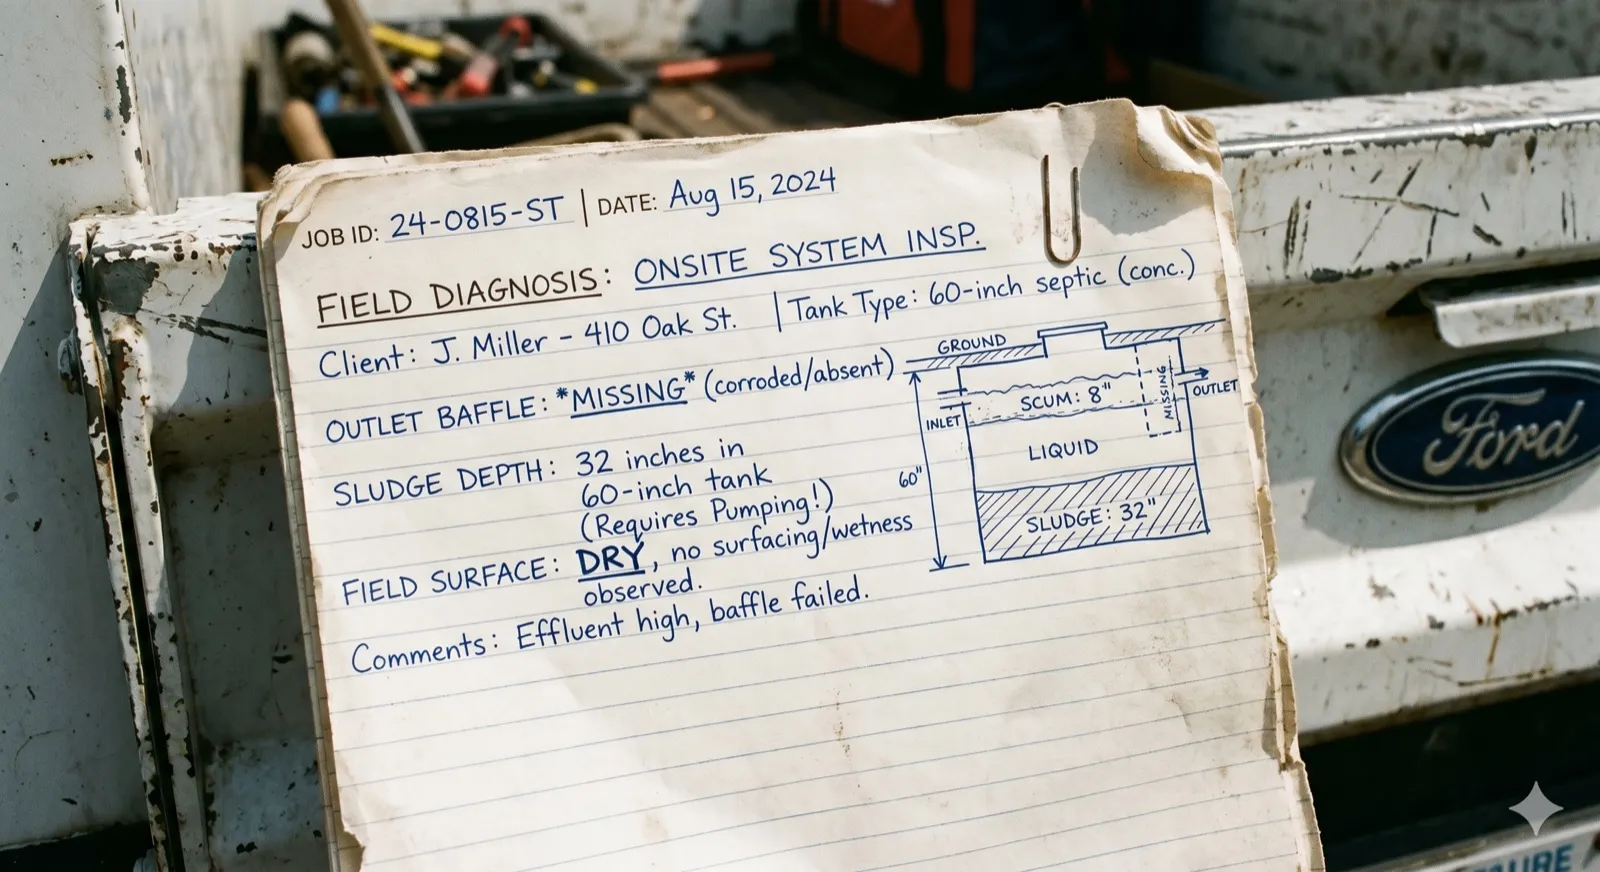 JOB ID: 24-0815-ST | DATE: Aug 15, 2024
FIELD DIAGNOSIS: ONSITE SYSTEM INSP.
Client: J. Miller - 410 Oak St. | Tank Type: 60-inch septic (conc.)
OUTLET BAFFLE: *MISSING* (corroded/absent)
SLUDGE DEPTH: 32 inches in
60-inch tank
(Requires Pumping!)
FIELD SURFACE: DRY, no surfacing/wetness
observed.
Comments: Effluent high, baffle failed.
GROUND
SCUM: 8"
MISSING
OUTLET
INLET
LIQUID
60"
SLUDGE: 32"
Ford